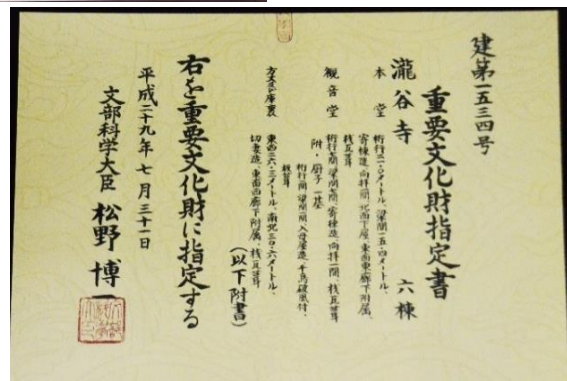 建第一五三四号
重要文化財指定書
瀧谷寺 六棟
本堂 桁行二一・〇メートル、梁間一五・四メートル、
寄棟造、向拝一間、北面下屋、東面東廊下附属、
桟瓦葺
観音堂 桁行三間、梁間三間、寄棟造、向拝一間、桟瓦葺
附・厨子一基
桁行一間、梁間一間、入母屋造、千鳥破風付、
板葺
方丈及び庫裏 東西二六・三メートル、南北二〇・六メートル、
切妻造、東面西廊下附属、桟瓦葺
(以下附書)
右を重要文化財に指定する
平成二十九年七月三十一日
文部科学大臣 松野博一